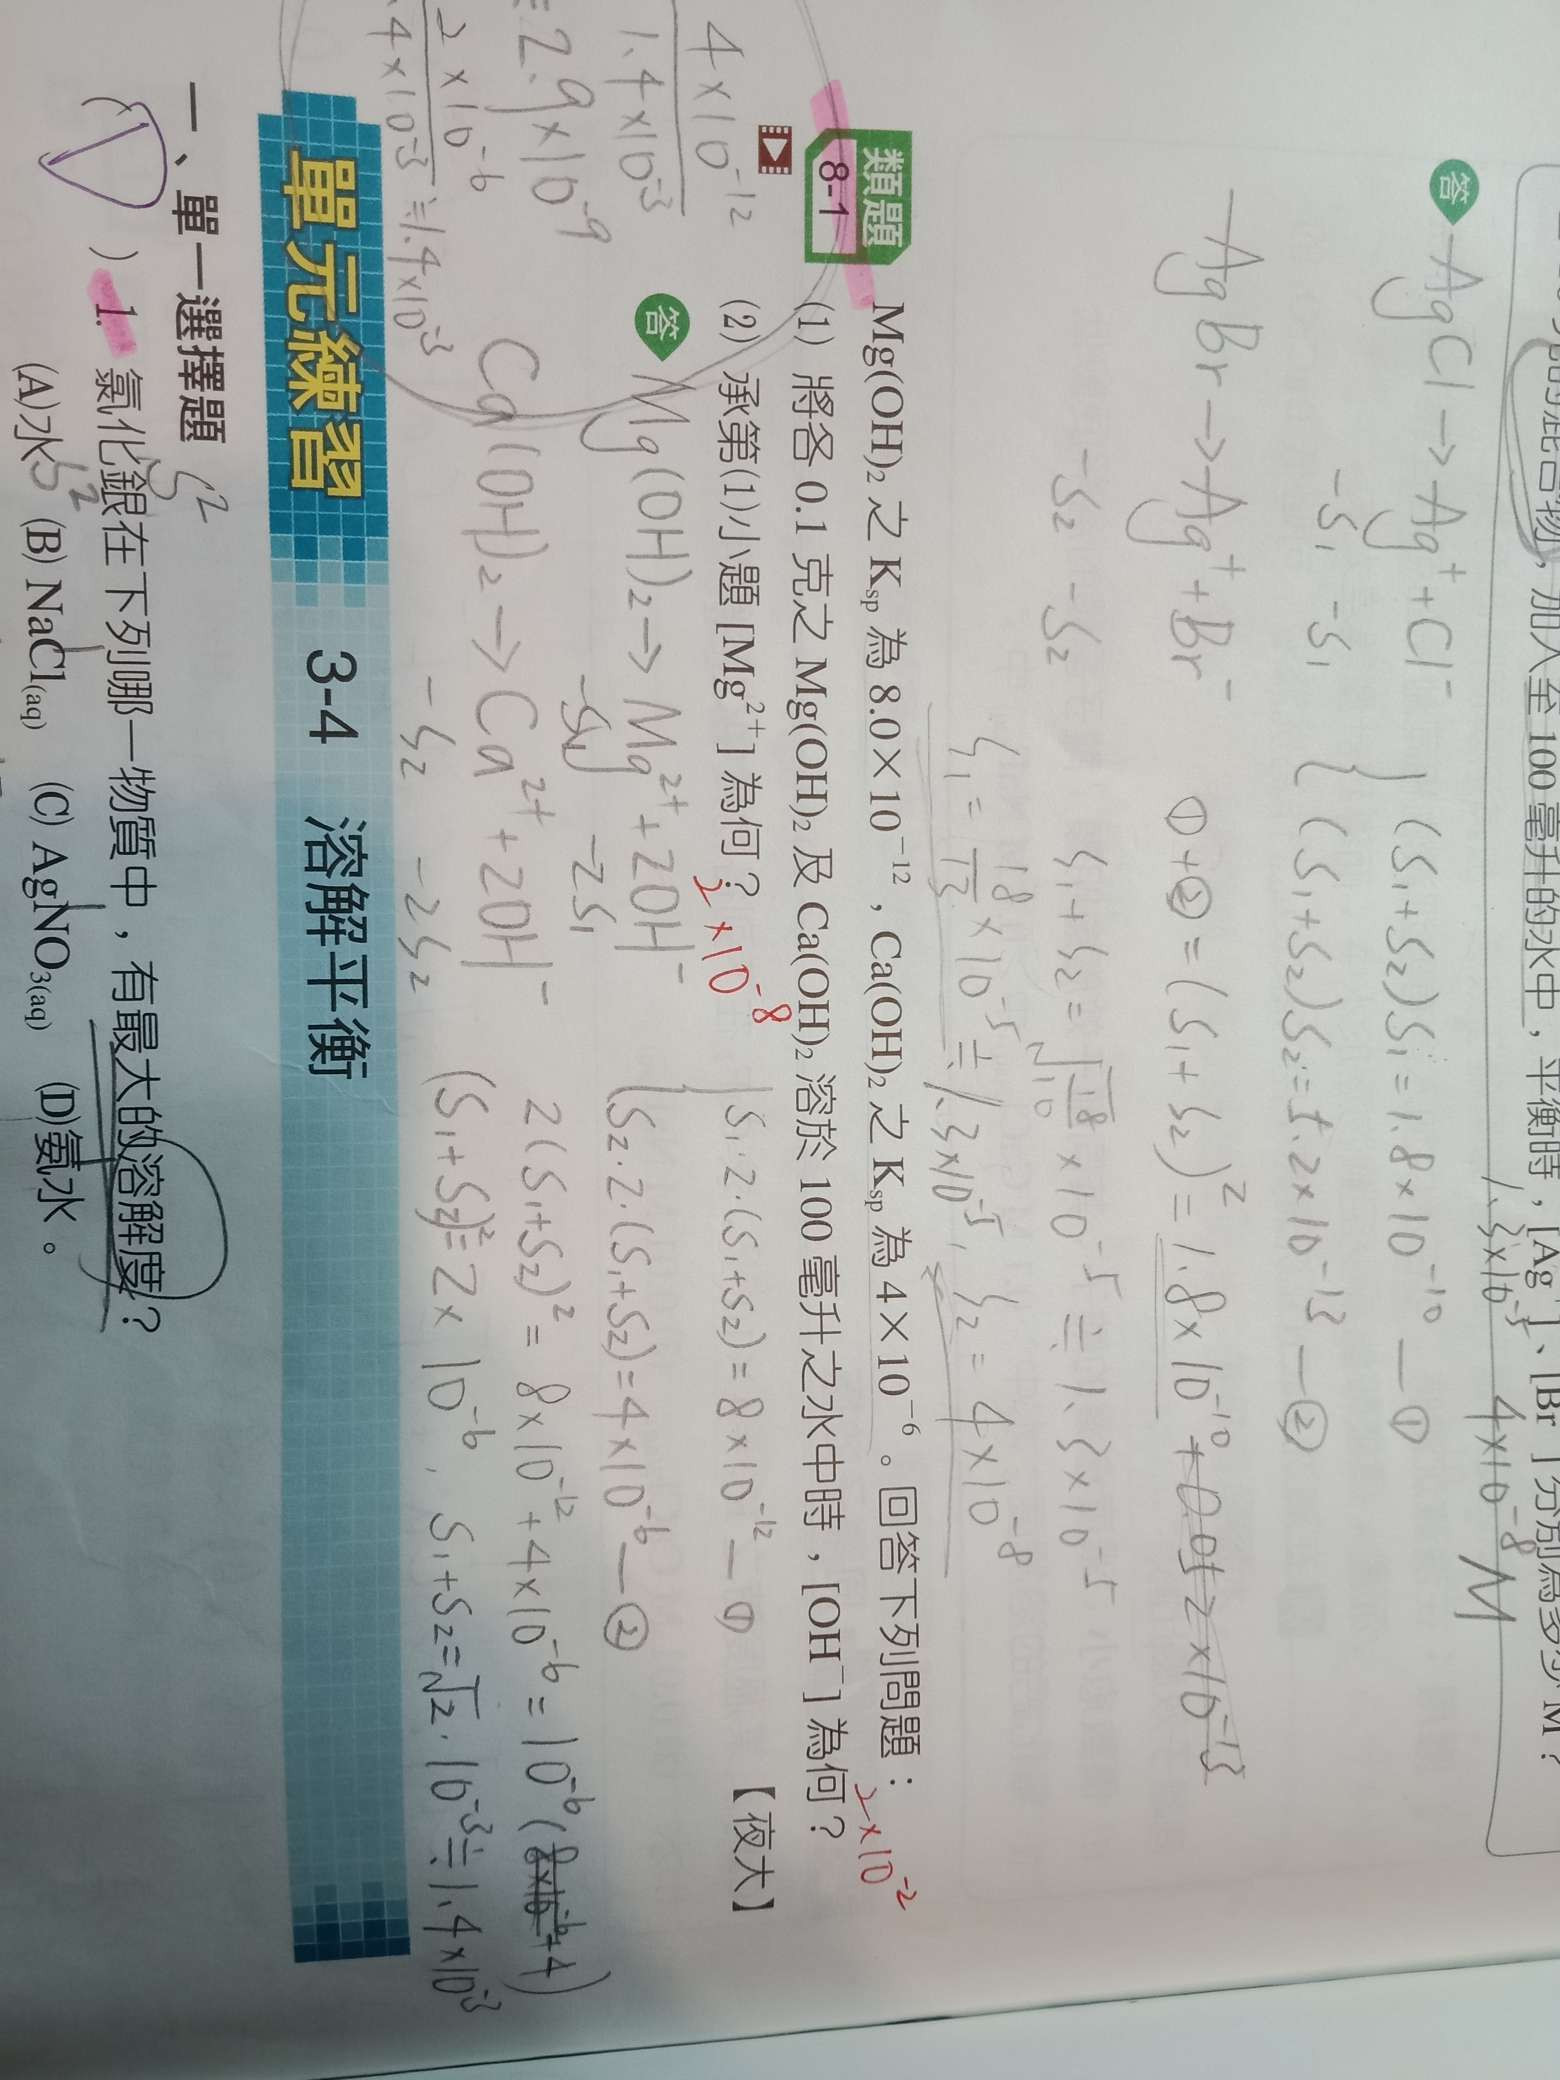 的混合物，加入至 100 毫升的水中，平衡時，[Ag ]、[Br ]分別為多少 M？
1.3×10⁻⁵ 4×10⁻⁸ M
答
AgCl → Ag⁺ + Cl⁻
-S₁ -S₁
AgBr → Ag⁺ + Br⁻
-S₂ -S₂
(S₁+S₂)S₁ = 1.8×10⁻¹⁰ —①
(S₁+S₂)S₂ = 5.2×10⁻¹³ —②
①+② = (S₁+S₂)² = 1.8×10⁻¹⁰ + 0.052×10⁻¹³
S₁+S₂ = √1.8/10 ×10⁻⁵ ≒ 1.3×10⁻⁵
S₁ = 18/13 ×10⁻⁵ ≒ 1.3×10⁻⁵, S₂ = 4×10⁻⁸
類題 8-1
Mg(OH)₂ 之 Ksp 為 8.0×10⁻¹²，Ca(OH)₂ 之 Ksp 為 4×10⁻⁶。回答下列問題：
(1) 將各 0.1 克之 Mg(OH)₂ 及 Ca(OH)₂ 溶於 100 毫升之水中時，[OH⁻] 為何？ 2×10⁻²
(2) 承第(1)小題 [Mg²⁺] 為何？ 2×10⁻⁸ 【夜大】
答
Mg(OH)₂ → Mg²⁺ + 2OH⁻
-S₁ -2S₁
Ca(OH)₂ → Ca²⁺ + 2OH⁻
-S₂ -2S₂
S₁·2·(S₁+S₂) = 8×10⁻¹² —①
S₂·2·(S₁+S₂) = 4×10⁻⁶ —②
2(S₁+S₂)² = 8×10⁻¹² + 4×10⁻⁶ = 10⁻⁶(8×10⁻⁶+4)
(S₁+S₂)² = 2×10⁻⁶, S₁+S₂ = √2·10⁻³ ≒ 1.4×10⁻³
4×10⁻¹²
1.4×10⁻³
≒2.9×10⁻⁹
2×10⁻⁶
1.4×10⁻³ ≒1.4×10⁻³
單元練習 3-4 溶解平衡
一、單一選擇題
( ) 1. 氯化銀在下列哪一物質中，有最大的溶解度？
(A)水 (B) NaCl(aq) (C) AgNO₃(aq) (D)氨水。